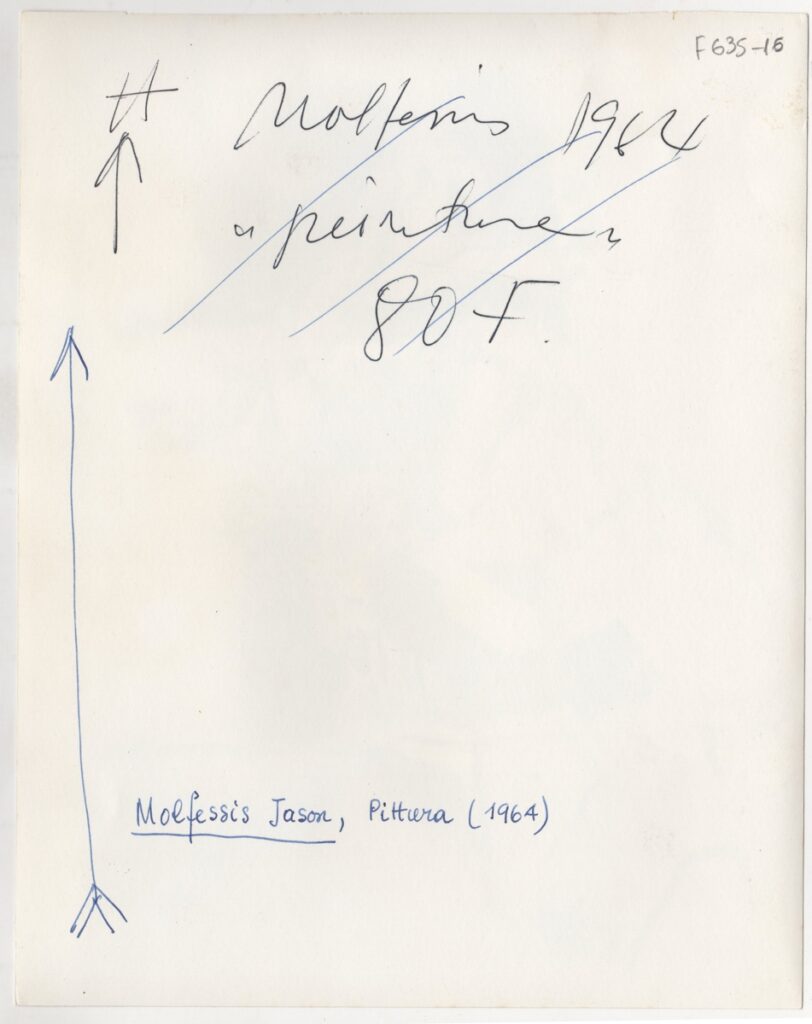 F635-16
H Molfessis 1964
"peinture"
80 F.
Molfessis Jason, Pittura (1964)